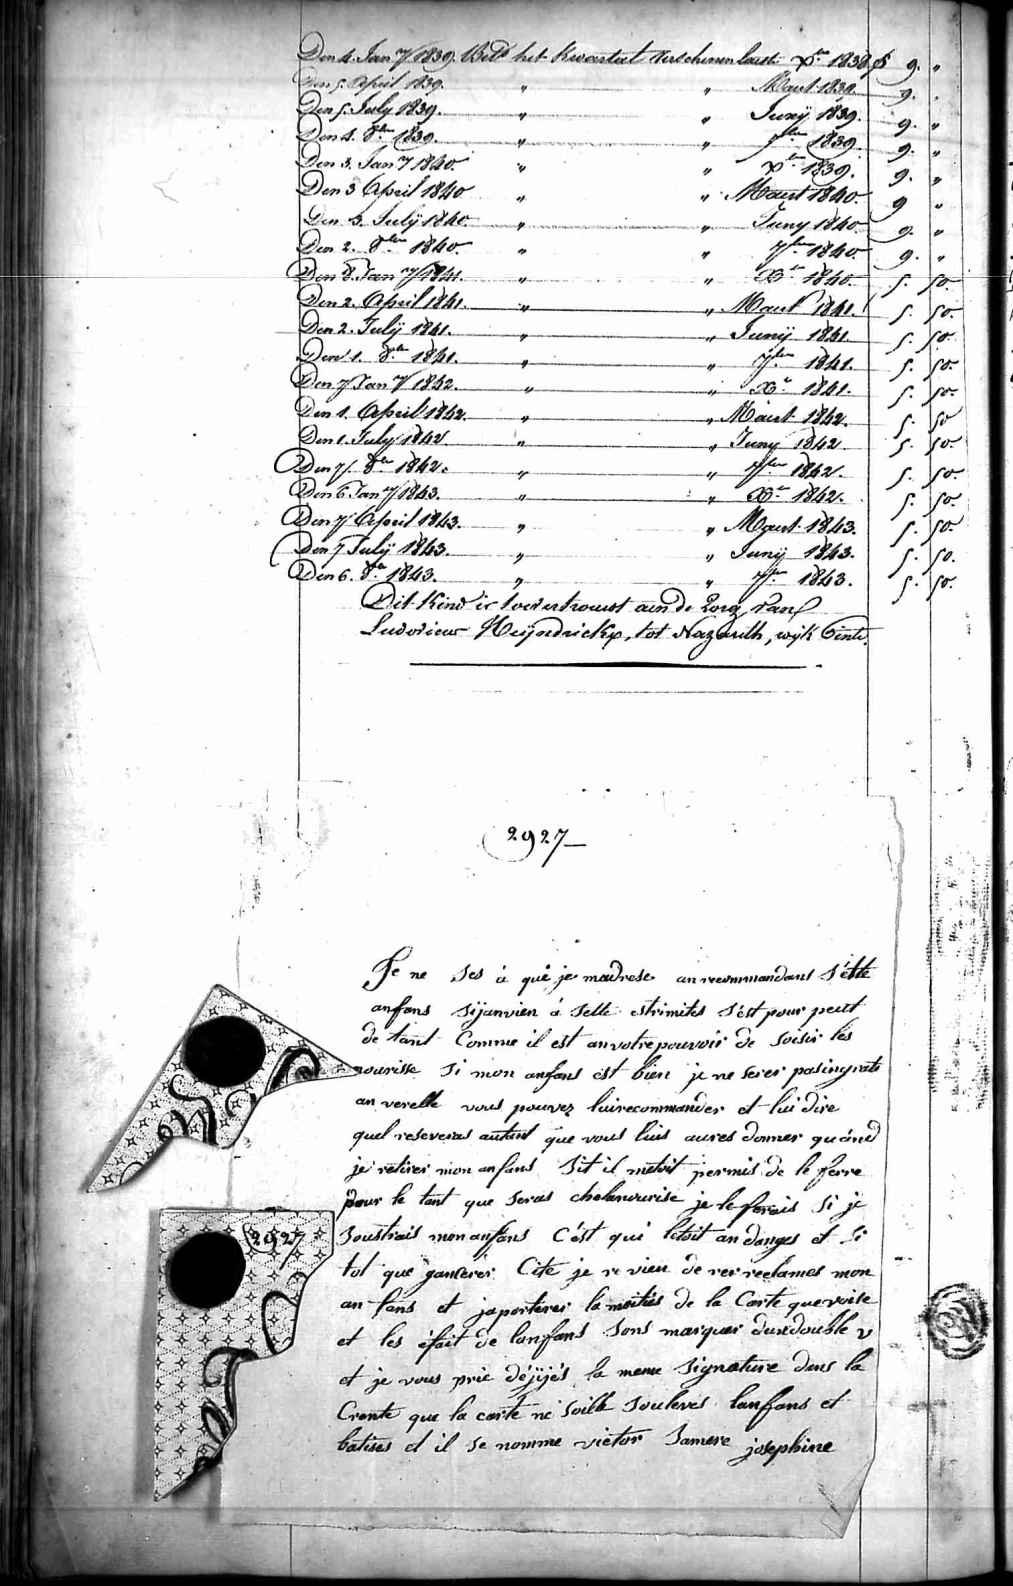 Den 4. Jan.y 1839. Bet.d het kwartiel verschenen laest. X.er 1838 f 9. "
Den 5. April 1839. " " Maert 1839. 9. "
Den 5. July 1839. " " Junij 1839. 9. "
Den 4. 8.ber 1839. " " 7.ber 1839. 9. "
Den 3. Jan.y 1840. " " X.er 1839. 9. "
Den 3 April 1840 " " Maert 1840. 9 "
Den 3. Julij 1840. " " Juny 1840. 9. "
Den 2. 8.ber 1840. " " 7.ber 1840. 9. "
Den 8. Jan.y 1841. " " X.er 1840. 5. 50.
Den 2. April 1841. " " Maert 1841. 5. 50.
Den 2. Julij 1841. " " Junij 1841. 5. 50.
Den 1. 8.ber 1841. " " 7.ber 1841. 5. 50.
Den 7 Jan.y 1842. " " X.er 1841. 5. 50.
Den 1. April 1842. " " Maert 1842. 5. 50
Den 1. July 1842. " " Juny 1842 5. 50.
Den 7. 8.ber 1842. " " 7.ber 1842. 5. 50.
Den 6 Jan.y 1843. " " X.er 1842. 5. 50.
Den 7 April 1843. " " Maert 1843. 5. 50.
Den 7 Julij 1843. " " Junij 1843. 5. 50.
Den 6. 8.ber 1843. " " 7.ber 1843. 5. 50.
Dit kind is toevertrouwt aen de zorg van
Ludovicus Heijndrickx, tot Nazareth, wijk Einde.
2927
Je ne ses à qui je madrese an recommandant s'ette
anfans sijanvien à sette estrimites s'est pour peut
de tant Comme il est an votre pouvoir de soisir les
nourisse si mon anfans est bien je ne serer pas ingrati
an verelle vous pouvez lui recommander et lui dire
quel reseveras autent que vous luis aures donner quánd
je retirer mon anfans sit il metoit permis de le ferre
pour le tant que seras chelanourise je le ferais si je
soustrais mon anfans c'est qui letoit an danges et si
tot que Cite je revien de rer reclames mon
an fans et japorterer la moities de la Carte que voise
et les éfait de lanfans sons marquer dun double v
et je vous prie déjijés la meme signature dans la
Crente que la carte ne soilk souleves lanfans et
batises et il se nomme victor samere josephine
2927